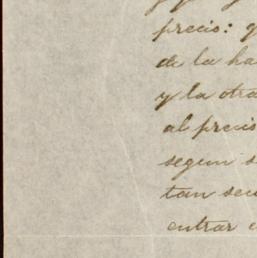 precio: q
de la ha
y la otra
al precis
segun s
tan sec
entrar e